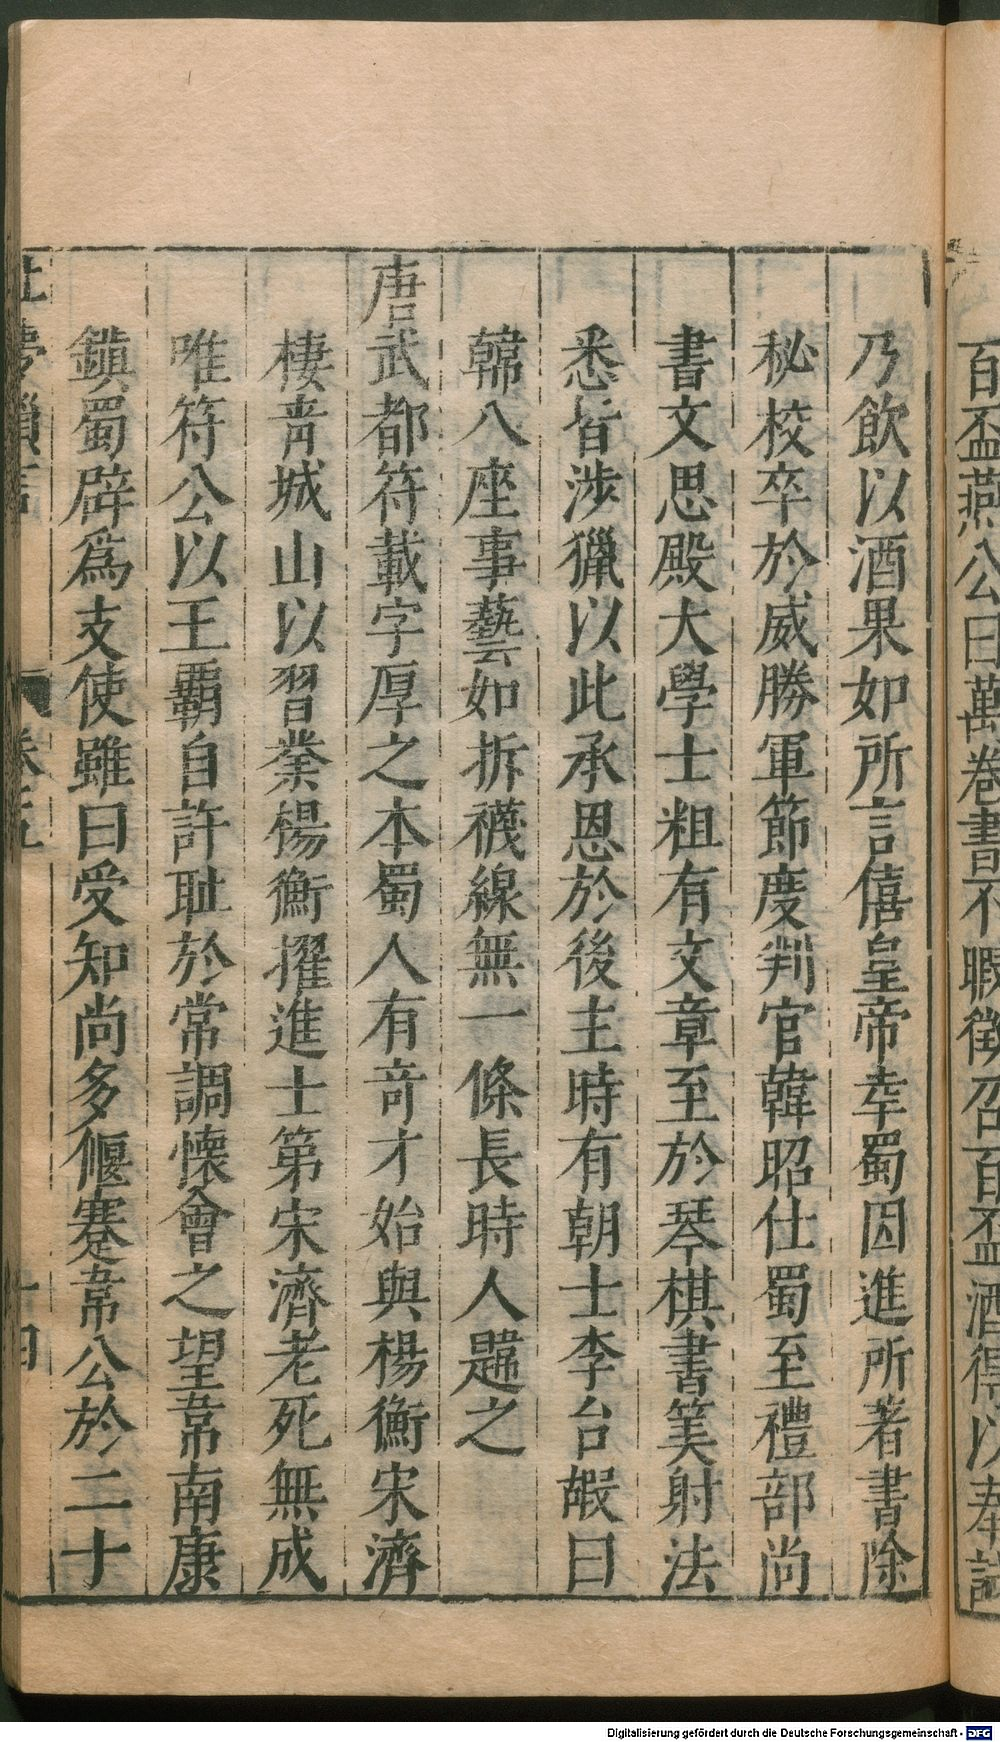 百盃燕公曰萬卷書不暇徵召百盃酒得以奉請
乃飲以酒果如所言僖皇帝幸蜀因進所著書除
秘校卒於威勝軍節度判官韓昭仕蜀至禮部尚
書文思殿大學士粗有文章至於琴棋書筭射法
悉皆涉獵以此承恩於後主時有朝士李台嘏曰
韓八座事藝如拆襪線無一條長時人韙之
唐武都符載字厚之本蜀人有奇才始與楊衡宋濟
棲青城山以習業楊衡擢進士第宋濟老死無成
唯符公以王霸自許耻於常調懷會之望韋南康
鎮蜀辟為支使雖曰受知尚多偃蹇韋公於二十
夢瑣言 卷五 十四
Digitalisierung gefördert durch die Deutsche Forschungsgemeinschaft - DFG